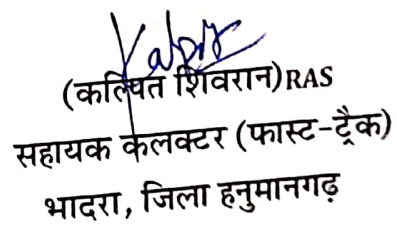 (कल्पित शिवरान)RAS
सहायक कलक्टर (फास्ट-ट्रैक)
भादरा, जिला हनुमानगढ़